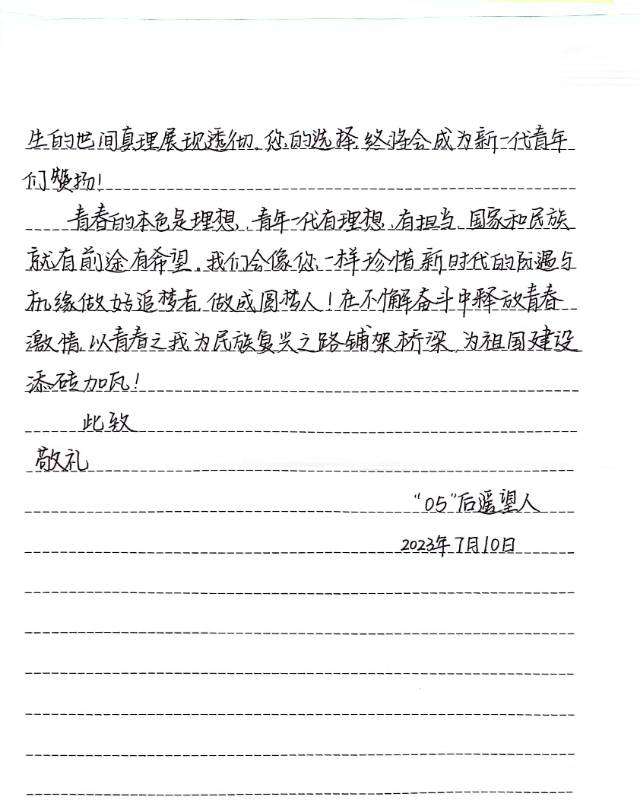 生的世间真理展现透彻，您的选择，终将会成为新一代青年
们赞扬！
青春的本色是理想，青年一代有理想，有担当，国家和民族
就有前途有希望。我们会像你一样珍惜新时代的际遇与
机缘做好追梦者，做成圆梦人！在不懈奋斗中释放青春
激情，以青春之我为民族复兴之路铺架桥梁，为祖国建设
添砖加瓦！
此致
敬礼
“05”后遥望人
2023年7月10日